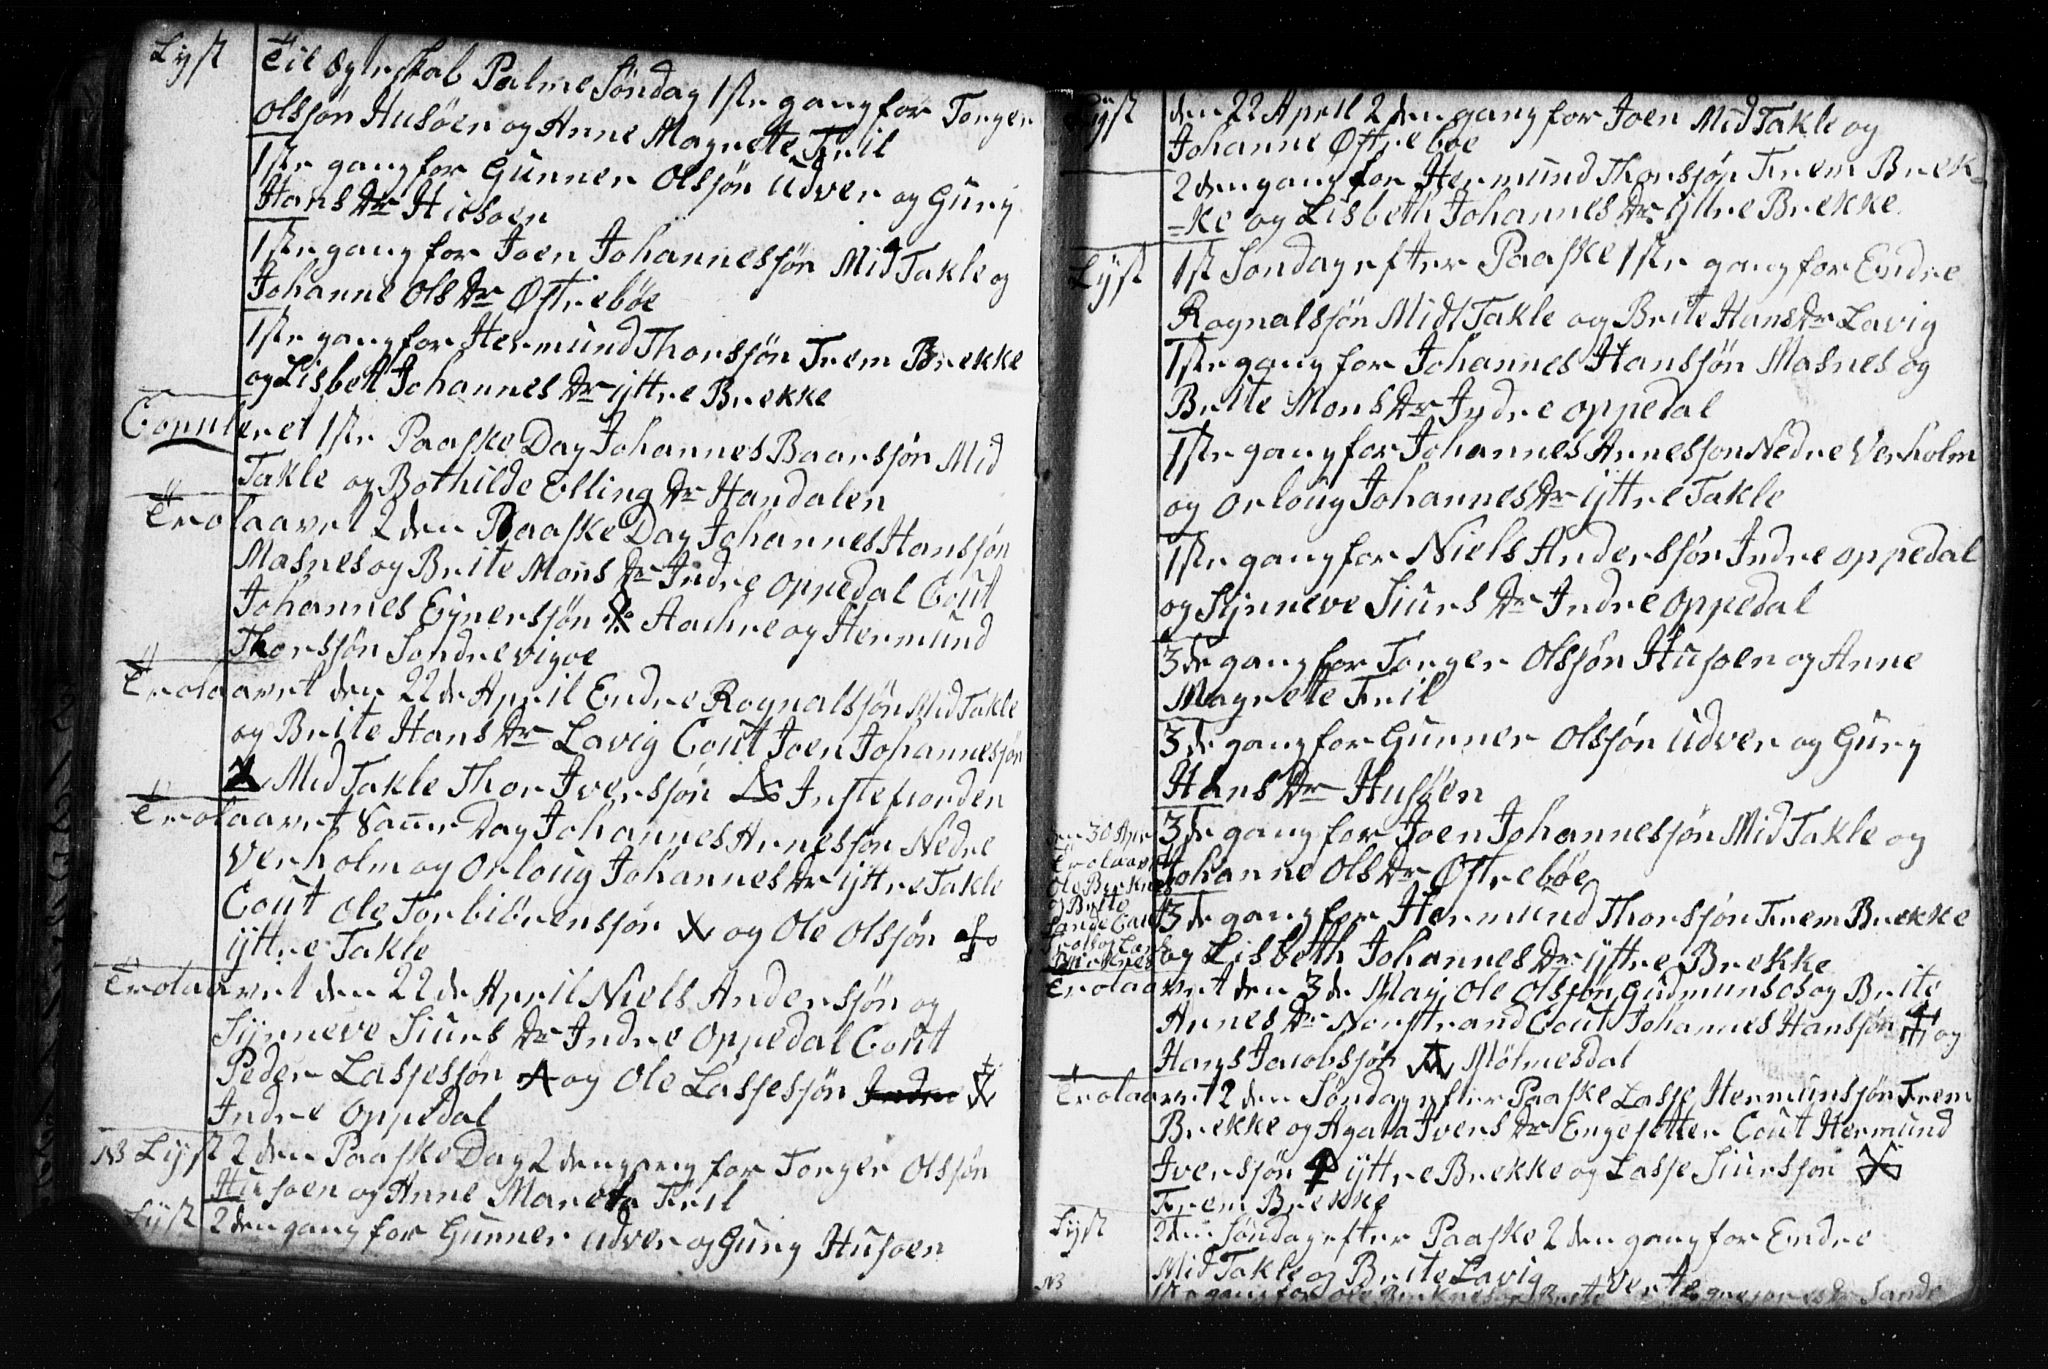 Lyst Til Egteskab Palme Søndag 1ste gang for Torger
Olssøn Husøen og Anne Magrete Friil
1ste gang for Gunner Olssøn Udver og Gury
Hans Dr Husoen
1ste gang for Joen Johannessøn Mid Takle og
Johanne Ols Dr Østrebøe
1ste gang for Hermund Thorssøn Frem Brekke
og Lisbett Johannes Dr yttre Brekke
Copuleret 1ste Paaske Day Johannes Baarssøn Mid
Takle og Bothilde Elling Dr Handalen
Trolaavet 2den Paaske Day Johannes Hanssøn
Masnes og Brite Mons Dr Indre Oppedal Cout
Johannes Eynerssøn og Hermund
Thorssøn Sondre vigoe
Trolaavet den 22de April Endre Rognalssøn Mid Takle
og Brite Hans Dr Lavig Cout Joen Johannessøn
Mid Takle Thor Iverssøn Instefiorden
Trolaavet Samme Day Johannes Arnessøn Nedre
Verholm og Orloug Johannes Dr yttre Takle
Cout Ole Torbiörenssøn og Ole Olssøn
yttre Takle
Trolaavet den 22de April Niels Anderssøn og
Synneve Siurs Dr Indre Oppedal Cout
Peder Lassessøn og Ole Lassessøn
Indre Oppedal
NB Lyst 2den Paaske Day 2den gang for Torger Olssøn
Husoen og Anne Marete Friil
Lyst 2den gang for Gunner Udver og Gury Husoen
Lyst den 22 April 2den gang for Joen Mid Takle og
Johanne Østrebøe
2den gang for Hermund Thorssøn Frem Brek-
=ke og Lisbeth Johannes Dr yttre Brekke
Lyst 1st Sondag efter Paaske 1ste gang for Endre
Rognalssøn Midt Takle og Brite Hans Dr Lavig
1ste gang for Johannes Hanssøn Masnes og
Brite Mons Dr Indre Oppedal
1ste gang for Johannes Arnessøn Nedre Verholm
og Orloug Johannes Dr yttre Takle
1ste gang for Niels Anderssøn Indre Oppedal
og Synneve Siurs Dr Indre Oppedal
3de gang for Torger Olssøn Husoen og Anne
Magrette Friil
3de gang for Gunner Olssøn Udver og Gury
Hans Dr Husøen
3de gang for Joen Johannessøn Mid Takle og
Johanne Ols Dr Østrebøe
3de gang for Hermund Thorssøn Frem Brekke
og Lisbeth Johannes Dr yttre Brekke
den 30 Apr
Trolaavet
Ole Birknes
og Brite
Sande Cout
Birknes
Trolaavet den 3de May Ole Olssøn og Brite
Arnes Dr Norstrand Cout Johannes Hanssøn og
Hans Jacobssøn Mölmesdal
Trolaavet 2den Søndag efter Paaske Lasse Hermunssøn Frem
Brekke og Agata Ivers Dr Engesetter Cout Hermund
Iverssøn yttre Brekke og Lasse Siurssøn
Frem Brekke
Lyst 2den Søndag efter Paaske 2den gang for Endre
Mid Takle og Brite Lavig
NB 1ste gang for Ole Birknes og Brite Sande